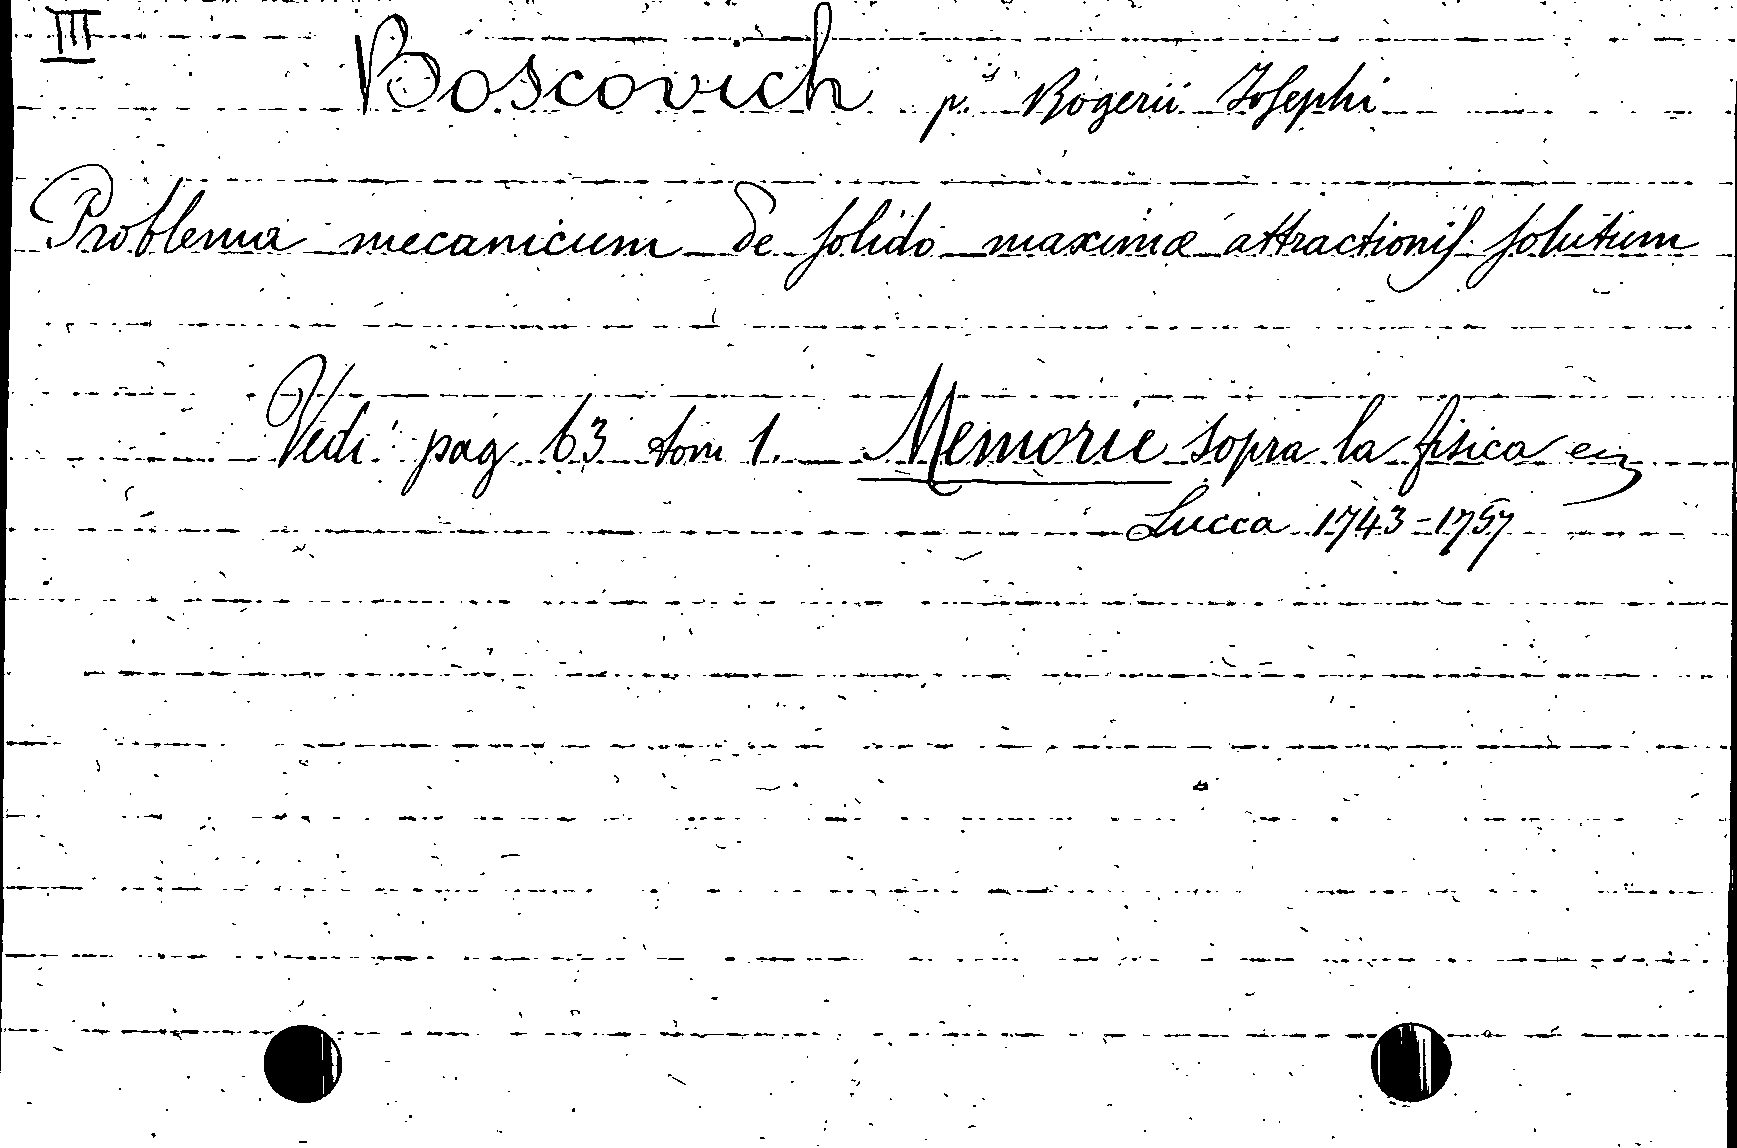 III
Boscovich p. Rogerii Iosephi
Problema mecanicum de solido maximæ attractionis solutum
Vedi: pag 63 tom 1. Memorie sopra la fisica
Lucca 1743-1757